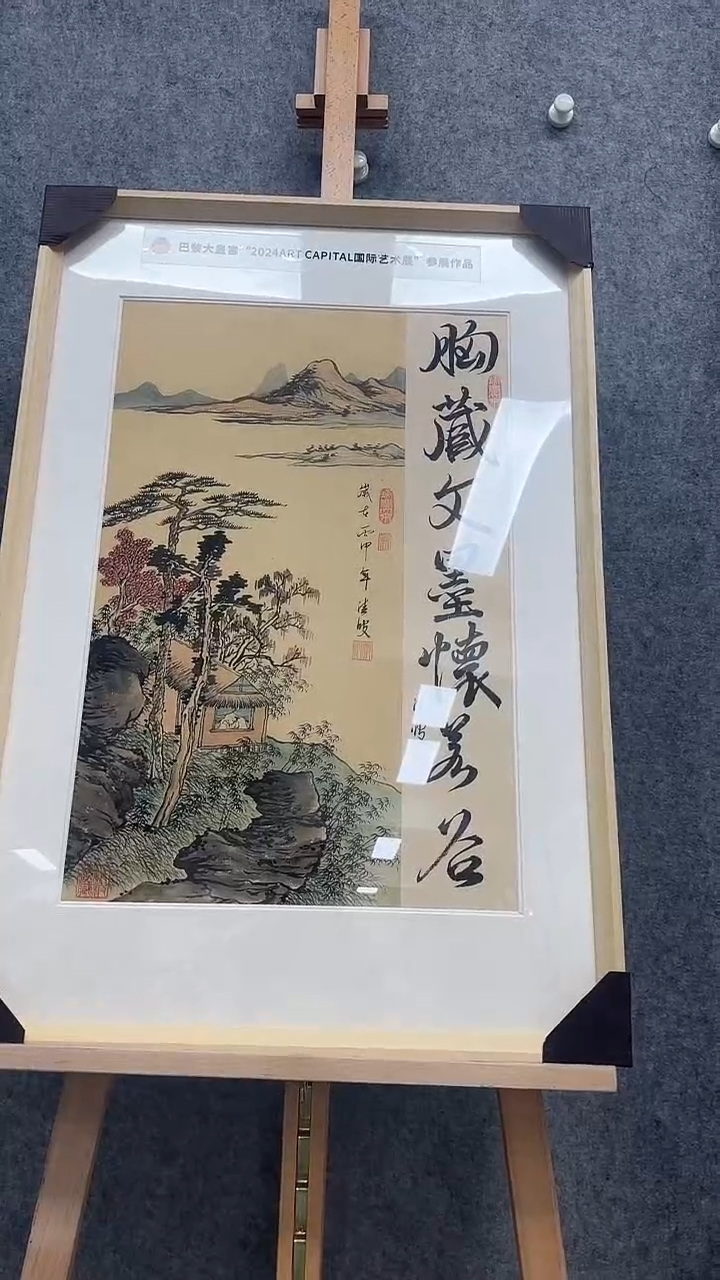 巴黎大皇宫“2024ART CAPITAL国际艺术展”参展作品
胸藏文墨怀若谷
岁在丙申年